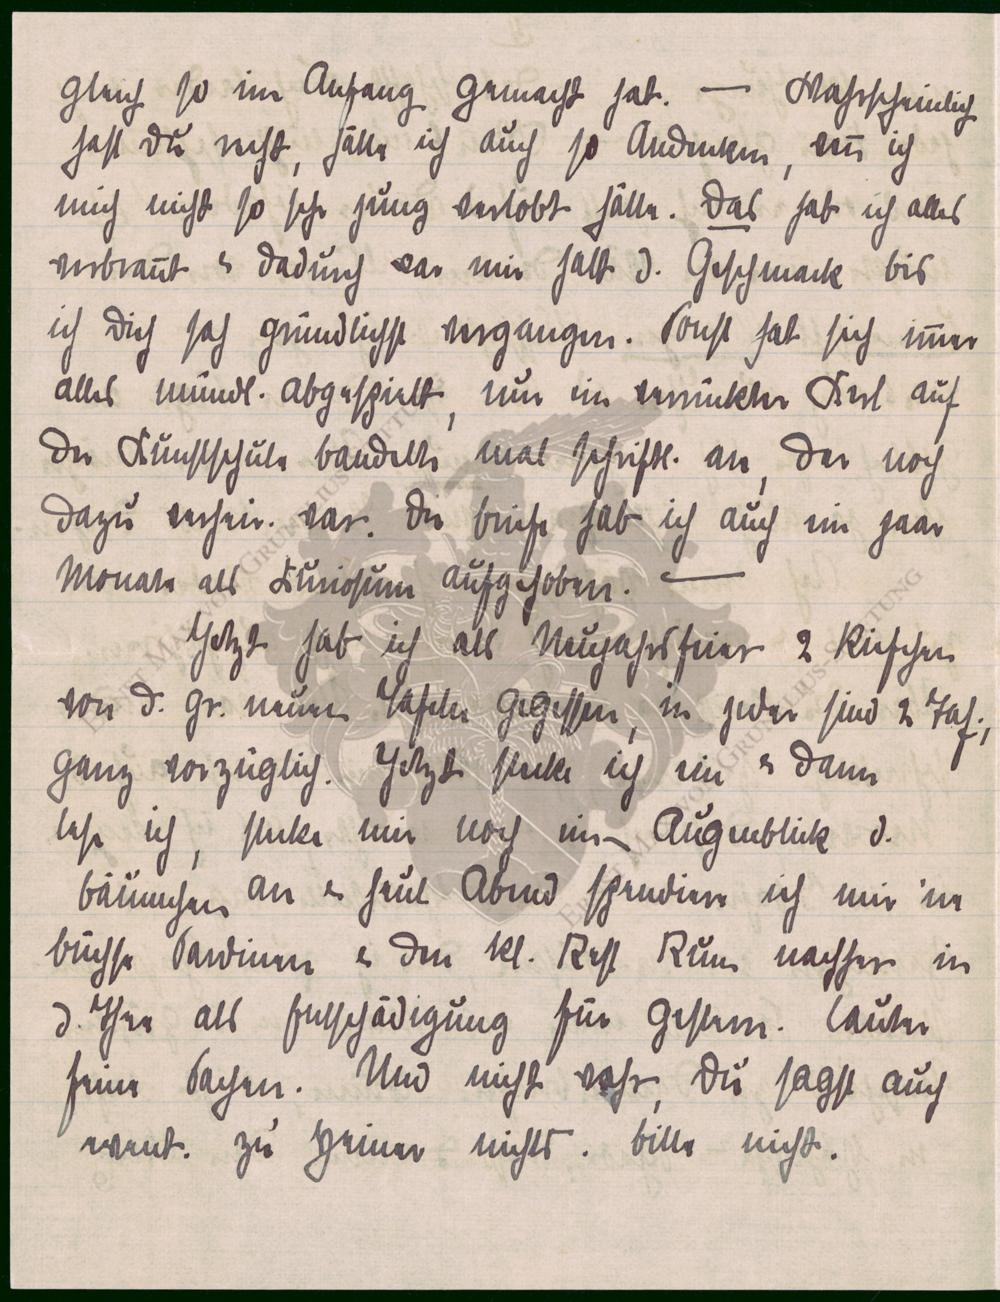 gleich so im Anfang gemacht hat. — Wahrscheinlich
hast Du recht, hätte ich auch so Andenken, wen̄ ich
mich nicht so sehr jung verlobt hätte. Das hab ich alles
verbran̄t & dadurch war mir halt d. Geschmack bis
ich Dich sah gründlichst vergangen. Sonst hat sich im̄er
alles mündl. abgespielt, nur ein verrückter Kerl auf
der Kunstschule bandelte mal schriftl. an, der noch
dazu verheir. war. Die briefe hab ich auch ein paar
Monate als Kuriosum aufgehoben. —
Jetzt hab ich als Neujahrsfeier 2 Riefchen
von d. gr. neuen Tafeln gegessen, in jeder sind 2 Taf.,
ganz vorzüglich. Jetzt stecke ich ein & dann
lese ich, stecke mir noch ein Augenblick d.
bäumchen an & heut Abend spendiere ich mir 'ne
büchse Sardinen & den kl. Rest Rum nachher in
d. Thee als Entschädigung für gestern. lauter
feine Sachen. Und nicht wahr, Du sagst auch
event. zu Heiner nichts. bitte nicht.
Ernst Mayr von Grunelius-Stiftung